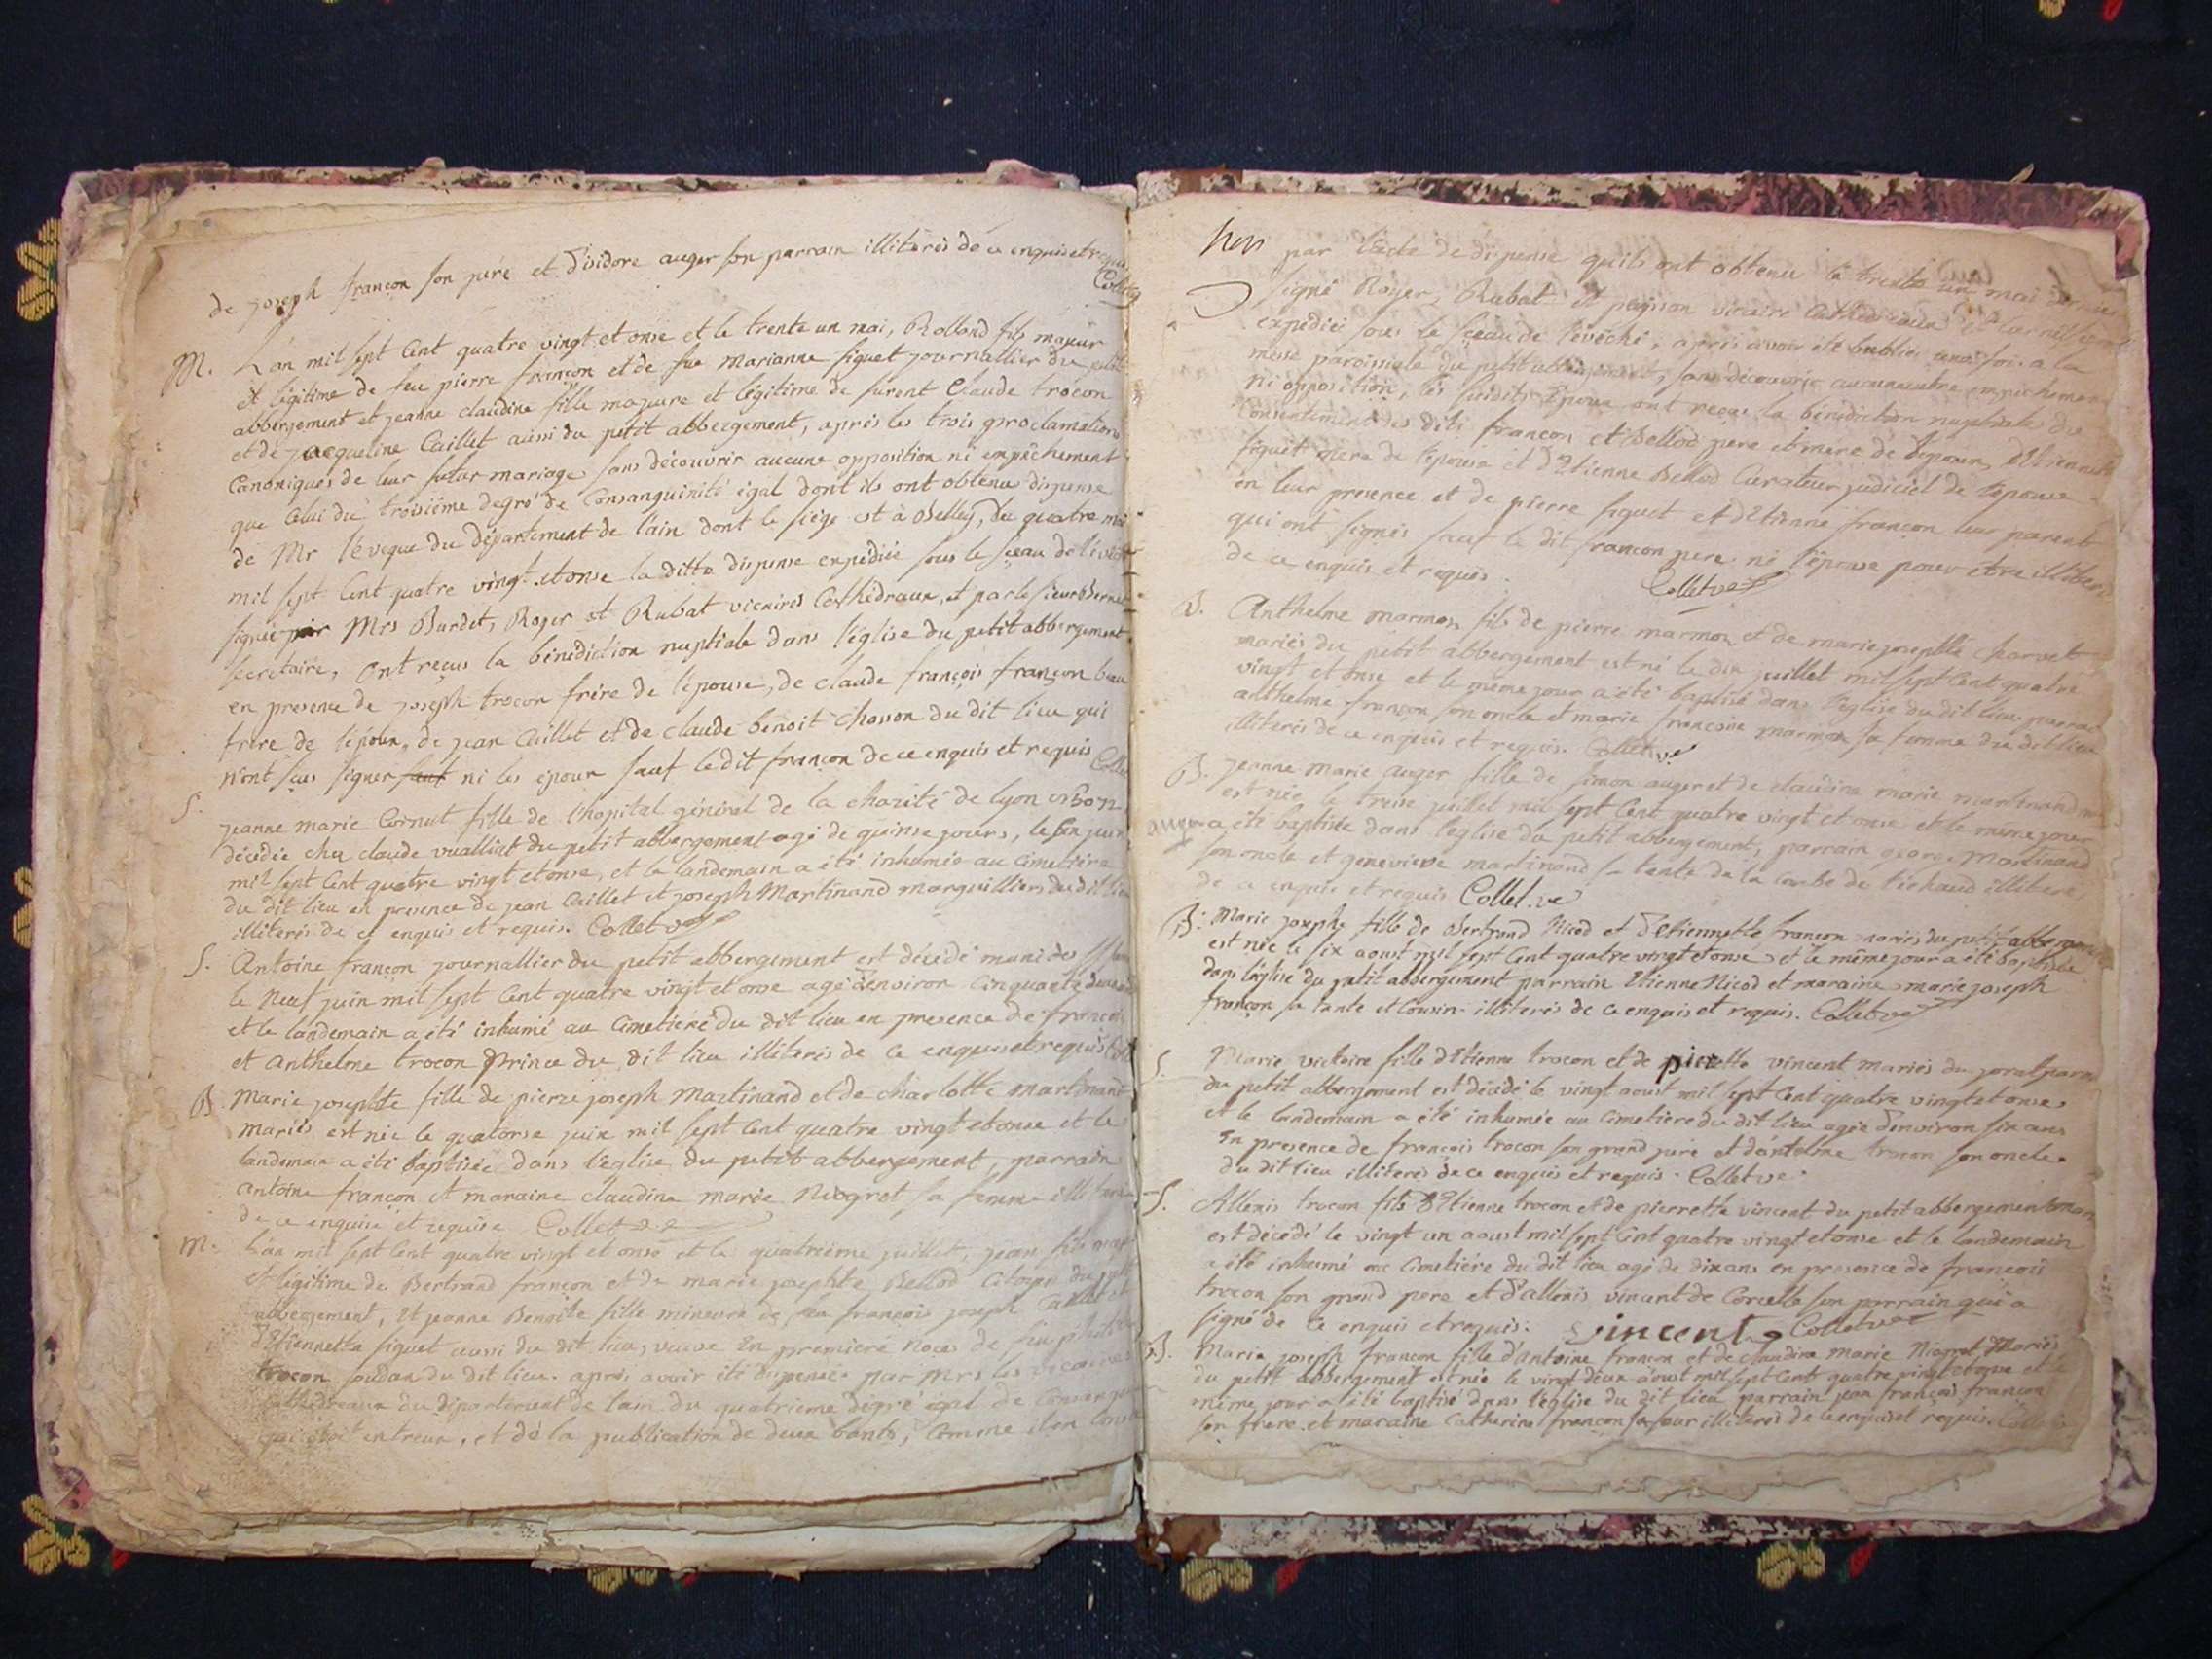 de joseph françon son pére et d'isidore auger son parrain illiterés de ce enquis et requis
Collet
M. L'an mil sept Cent quatre vingt et onse et le trente un mai, Rolland fils majeur
et légitime de feu pierre françon et de fue Marianne figuet journallier du petit
abbergement et jeanne claudine fille majeure et légitime de furent Claude trocon
et de jacqueline Caillet aussi du petit abbergement, aprés les trois proclamations
Canoniques de leur futur mariage sans découvrir aucune opposition ni empêchement
que Celui du troisiéme degré de Consanguinité égal dont ils ont obtenu dispense
de Mr l'éveque du département de l'ain dont le siége est à Belley, du quatre mai
mil sept Cent quatre vingt et onse la ditte dispense expediée sous le sceau de l'évêché
signée par Mrs Burdet, Royer et Rubat vicaires Cathédraux, et par le sieur
secrétaire, ont reçus la bénédiction nuptiale dans l'église du petit abbergement
en presence de joseph trocon frére de l'épouse, de claude françois françon beau
frére de l'époux, de jean Caillet et de claude benoit Chosson du dit lieu qui
n'ont sçus signer sauf ni les époux sauf le dit françon de ce enquis et requis Collet
S. jeanne marie Cornut fille de l'hopital général de la charité de lyon
décédée chez claude vualliat du petit abbergement agé de quinse jours, le juin
mil sept Cent quatre vingt et onse, et le landemain a été inhumée au Cimetiére
du dit lieu en presence de jean Caillet et joseph Martinand marguilliers du dit lieu
illiterés de ce enquis et requis. Collet ve
S. Antoine françon journallier du petit abbergement est décédé muni des
le Neuf juin mil sept Cent quatre vingt et onse agé d'environ Cinquante
et le landemain a été inhumé au Cimetiére du dit lieu en presence de françois
et anthelme trocon prince du dit lieu illiterés de ce enquis et requis
B. Marie josephte fille de pierre joseph Martinand et de charlotte martinand
mariés est née le quatorse juin mil sept Cent quatre vingt et onse et le
landemain a été baptisée dans l'église du petit abbergement, parrain
antoine françon et maraine claudine marie Niogret, sa femme
de ce enquise et requise Collet ve
M. L'an mil sept Cent quatre vingt et onse et le quatriéme juillet, jean fils
et légitime de Bertrand françon et de marie josephte Bellod Citoyen du petit
abbergement, et jeanne Benoite fille mineure de feu françois joseph Caillet et
d'Etiennette figuet aussi du dit lieu, veuve en premiere Noces de feu
trocon soudan du dit lieu. aprés avoir été dispensés par Mrs les vicaires
Cathédraux du département de l'ain du quatriéme dégré égal de Consanguinité
qui étoit entreux, et de la publication de deux bants, Comme il en
par l'acte de dispense quils ont obtenu le trente un mai dernier
signé Royer, Rubat et vicaire Cathedraux et
expediéé sous le sceau de l'évêché, aprés avoir été publiés une fois a la
messe paroissiale du petit abbergement, sans découvrir aucun autre empêchement
ni opposition, les susdits Epoux ont reçus la bénédiction nuptiale du
Consentement des dits françon et Bellod pere et mere de l'époux, d'Etiennette
figuet mere de l'épouse et d'Etienne Bellod Curateur judiciel de l'épouse
en leur presence et de pierre figuet et d'Etienne françon leur parent
qui ont signés sauf le dit françon pere ni l'épouse pour etre illiterés
de ce enquis et requis. Collet ve
B. Anthelme marmon fils de pierre marmon et de marie josephte charvet
mariés du petit abbergement est né le dix juillet mil sept Cent quatre
vingt et onse et le même jour a été baptisé dans l'église du dit lieu parrain
anthelme françon son oncle et marie françoise marmon sa femme du dit lieu
illiterés de ce enquis et requis. Collet ve
B. jeanne marie auger fille de simon auger et de claudine marie martinand
est née le treise juillet mil sept Cent quatre vingt et onse et le même jour
auger a été baptisée dans l'église du petit abbergement, parrain george Martinand
son oncle et genevieve martinand sa tante de la Combe de lichaud
de ce enquis et requis Collet. ve
B. Marie josephe fille de Bertrand Nicod et d'Etiennette françon mariés du petit abbergement
est née le six aoust mil sept Cent quatre vingt et onse et le même jour a été baptisée
dans l'église du petit abbergement parrain Etienne Nicod et maraine marie joseph
françon sa tante et Cousin illiterés de ce enquis et requis. Collet ve
S. Marie victoire fille d'Etienne trocon et de pierrette vincent mariés du
du petit abbergement est décédé le vingt aoust mil sept Cent quatre vingt et onse
et le landemain a été inhumée au Cimetiere du dit lieu agée d'environ six ans
En presence de françois trocon son grand pere et d'antelme trocon son oncle
du dit lieu illiterés de ce enquis et requis. Collet ve
S. Allexis trocon fils d'Etienne trocon et de pierrette vincent du petit abbergement
est décédé le vingt un aoust mil sept Cent quatre vingt et onse et le landemain
a été inhumé au Cimetiére du dit lieu agé de dix ans en presence de françois
trocon son grand pere et d'allexis vincent de Corcelle son parrain qui a
signé de Ce enquis et requis. vincent Collet ve
B. Marie joseph françon fille d'antoine françon et de claudine marie Niogret Mariés
du petit abbergement est née le vingt deux aoust mil sept Cent quatre vingt et onse et le
même jour a été baptisé dans l'église du dit lieu parrain jean françois françon
son frere et maraine Catherine françon sa sœur illiterés de ce enquis et requis. Collet